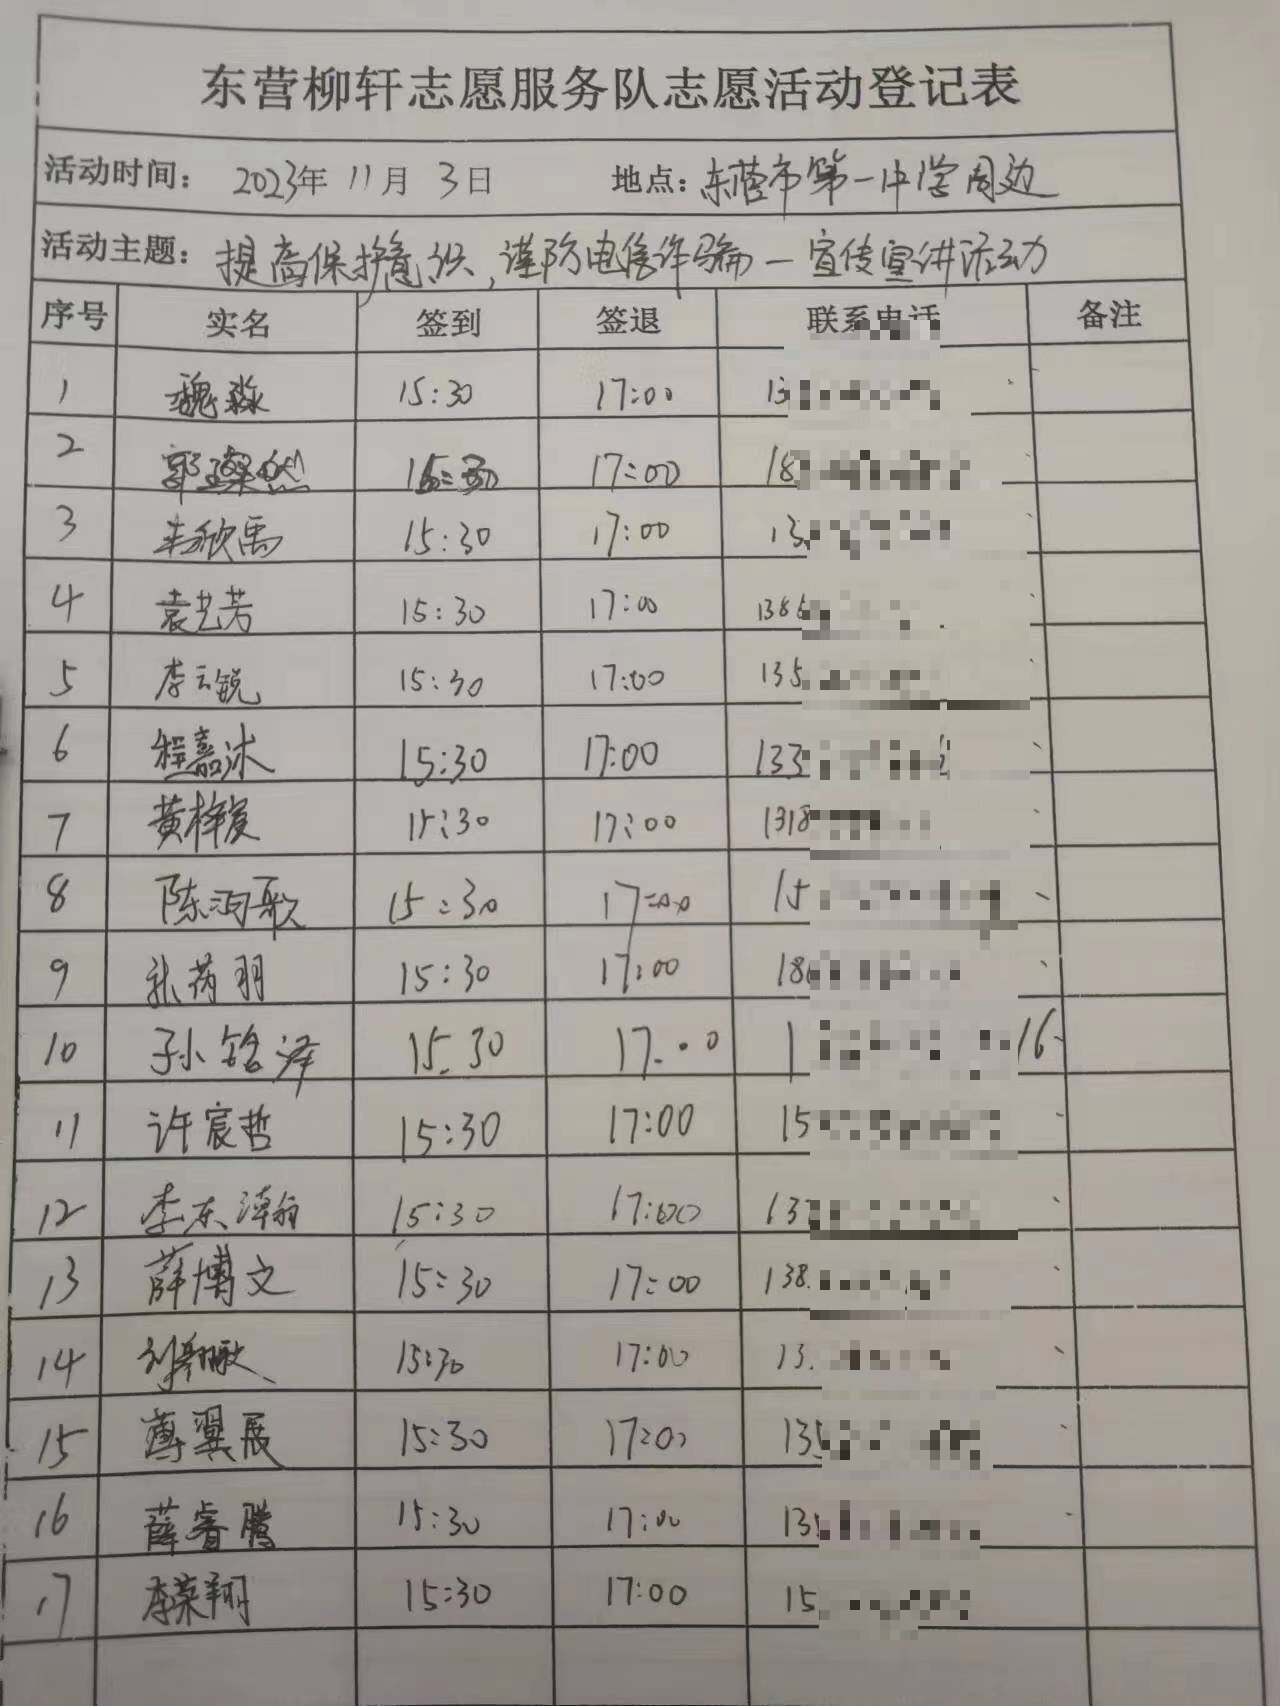 东营柳轩志愿服务队志愿活动登记表
活动时间： 2023年 11月 3日 地点：东营市第一中学周边
活动主题：提高保护意识，谨防电信诈骗—宣传宣讲活动
序号 实名 签到 签退 联系电话 备注
1 魏淼 15:30 17:00 13
2 郭璨然 15:30 17:00 18
3 欣禹 15:30 17:00 13
4 袁艺芳 15:30 17:00 138
5 李云锐 15:30 17:00 135
6 程嘉冰 15:30 17:00 133
7 黄梓 15:30 17:00 1318
8 陈泃歌 15:30 17:00 15
9 张芮羽 15:30 17:00 18
10 孙铭泽 15:30 17:00 1 16
11 许宸哲 15:30 17:00 15
12 李东 15:30 17:00 137
13 薛博文 15:30 17:00 138
14 刘 15:30 17:00 13
15 翼展 15:30 17:00 135
16 薛睿腾 15:30 17:00 135
17 李荣翔 15:30 17:00 15